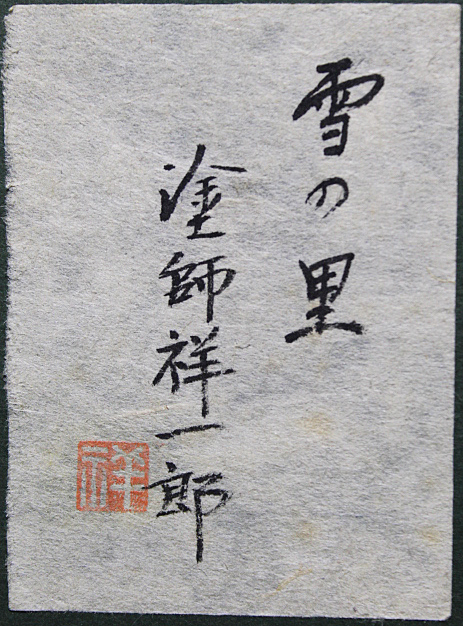 雪の里
塗師祥一郎
祥